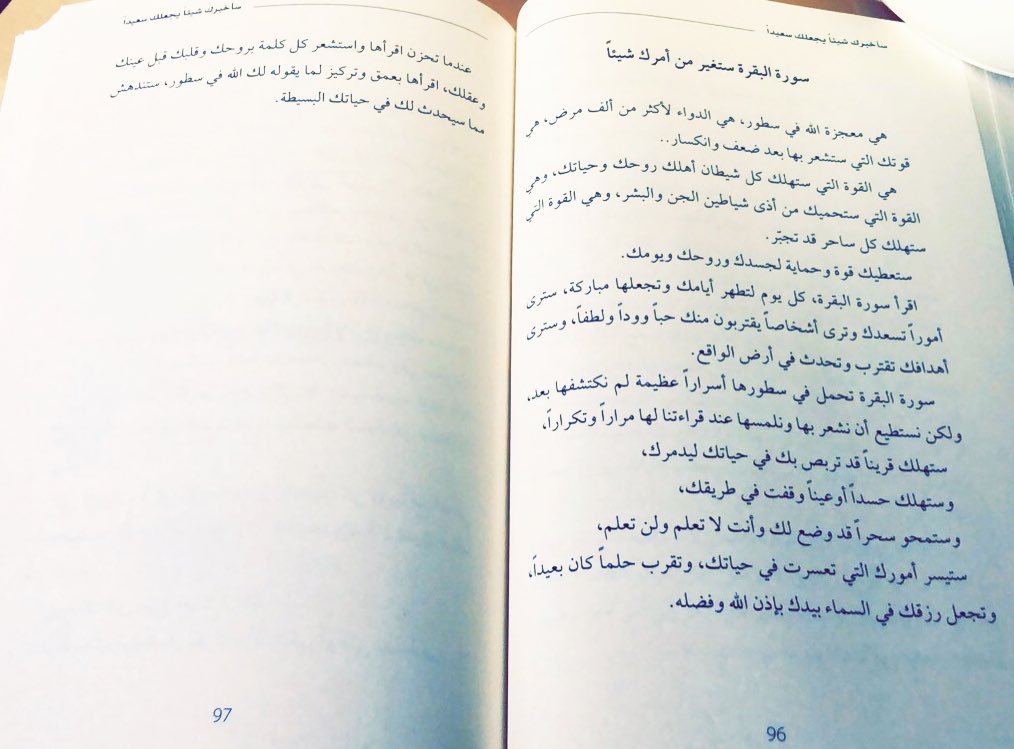 سأخبرك شيئاً يجعلك سعيداً
سورة البقرة ستغير من أمرك شيئاً
هي معجزة الله في سطور، هي الدواء لأكثر من ألف مرض، هي
قوتك التي ستشعر بها بعد ضعف وانكسار..
هي القوة التي ستهلك كل شيطان أهلك روحك وحياتك، وهي
القوة التي ستحميك من أذى شياطين الجن والبشر، وهي القوة التي
ستهلك كل ساحر قد تجبّر.
ستعطيك قوة وحماية لجسدك وروحك ويومك.
اقرأ سورة البقرة، كل يوم لتطهر أيامك وتجعلها مباركة، سترى
أموراً تسعدك وترى أشخاصاً يقتربون منك حباً ووداً ولطفاً، وسترى
أهدافك تقترب وتحدث في أرض الواقع.
سورة البقرة تحمل في سطورها أسراراً عظيمة لم نكتشفها بعد،
ولكن نستطيع أن نشعر بها ونلمسها عند قراءتنا لها مراراً وتكراراً،
ستهلك قريناً قد تربص بك في حياتك ليدمرك،
وستهلك حسداً أوعيناً وقفت في طريقك،
وستمحو سحراً قد وضع لك وأنت لا تعلم ولن تعلم،
ستيسر أمورك التي تعسرت في حياتك، وتقرب حلماً كان بعيداً،
وتجعل رزقك في السماء بيدك بإذن الله وفضله.
96
سأخبرك شيئاً يجعلك سعيداً
عندما تحزن اقرأها واستشعر كل كلمة بروحك وقلبك قبل عينك
وعقلك، اقرأها بعمق وتركيز لما يقوله لك الله في سطور، ستندهش
مما سيحدث لك في حياتك البسيطة.
97